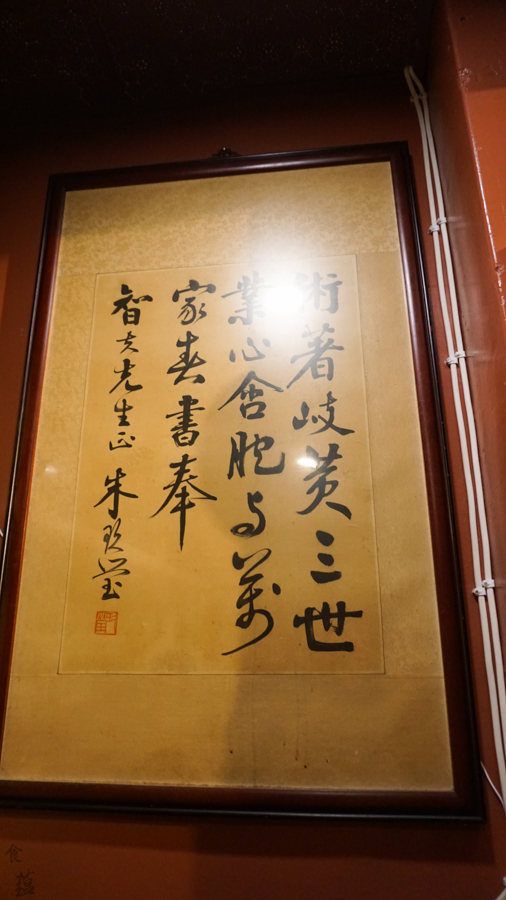 術著岐黃三世
業心含胞与萬
家春書奉
智夫先生正 朱玖瑩
食
蘊